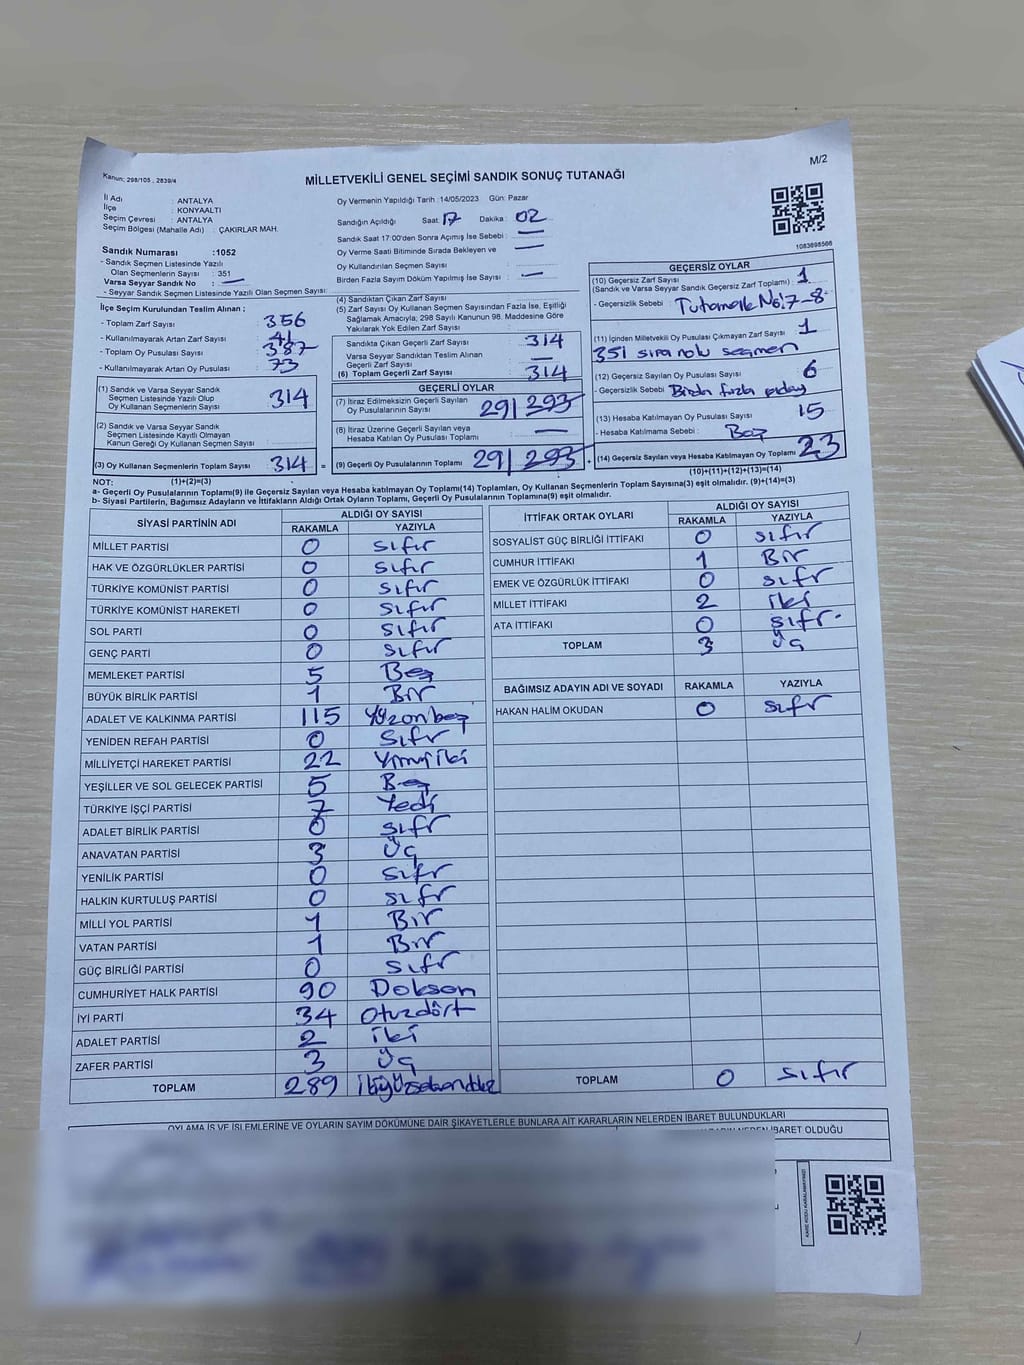 M/2
Kanun: 298/105 , 2839/4
MİLLETVEKİLİ GENEL SEÇİMİ SANDIK SONUÇ TUTANAĞI
İl Adı : ANTALYA
İlçe : KONYAALTI
Seçim Çevresi : ANTALYA
Seçim Bölgesi (Mahalle Adı) : ÇAKIRLAR MAH.
Sandık Numarası :1052
- Sandık Seçmen Listesinde Yazılı
Olan Seçmenlerin Sayısı : 351
Varsa Seyyar Sandık No : —
- Seyyar Sandık Seçmen Listesinde Yazılı Olan Seçmen Sayısı:
İlçe Seçim Kurulundan Teslim Alınan ;
- Toplam Zarf Sayısı : 356
- Kullanılmayarak Artan Zarf Sayısı : 41
- Toplam Oy Pusulası Sayısı : 387
- Kullanılmayarak Artan Oy Pusulası : 73
(1) Sandık ve Varsa Seyyar Sandık
Seçmen Listesinde Yazılı Olup
Oy Kullanan Seçmenlerin Sayısı : 314
(2) Sandık ve Varsa Seyyar Sandık
Seçmen Listesinde Kayıtlı Olmayan
Kanun Gereği Oy Kullanan Seçmen Sayısı :
(3) Oy Kullanan Seçmenlerin Toplam Sayısı : 314 =
(1)+(2)=(3)
Oy Vermenin Yapıldığı Tarih :14/05/2023 Gün: Pazar
Sandığın Açıldığı Saat : 17 Dakika : 02
Sandık Saat 17:00'den Sonra Açımış İse Sebebi : —
Oy Verme Saati Bitiminde Sırada Bekleyen ve —
Oy Kullandırılan Seçmen Sayısı :
Birden Fazla Sayım Döküm Yapılmış İse Sayısı : —
(4) Sandıktan Çıkan Zarf Sayısı :
(5) Zarf Sayısı Oy Kullanan Seçmen Sayısından Fazla İse, Eşitliği
Sağlamak Amacıyla; 298 Sayılı Kanunun 98. Maddesine Göre
Yakılarak Yok Edilen Zarf Sayısı :
Sandıkta Çıkan Geçerli Zarf Sayısı : 314
Varsa Seyyar Sandıktan Teslim Alınan
Geçerli Zarf Sayısı : —
(6) Toplam Geçerli Zarf Sayısı : 314
GEÇERLİ OYLAR
(7) İtiraz Edilmeksizin Geçerli Sayılan
Oy Pusulalarının Sayısı : 291 293
(8) İtiraz Üzerine Geçerli Sayılan veya
Hesaba Katılan Oy Pusulası Toplamı : —
(9) Geçerli Oy Pusulalarının Toplamı : 291 293 +
1083698566
GEÇERSİZ OYLAR
(10) Geçersiz Zarf Sayısı
(Sandık ve Varsa Seyyar Sandık Geçersiz Zarf Toplamı) : 1
- Geçersizlik Sebebi : Tutanak No:7-8
(11) İçinden Milletvekili Oy Pusulası Çıkmayan Zarf Sayısı : 1
351 sıra nolu seçmen
(12) Geçersiz Sayılan Oy Pusulası Sayısı : 6
- Geçersizlik Sebebi : Birden fazla
(13) Hesaba Katılmayan Oy Pusulası Sayısı : 15
- Hesaba Katılmama Sebebi : Boş
(14) Geçersiz Sayılan veya Hesaba Katılmayan Oy Toplamı : 23
(10)+(11)+(12)+(13)=(14)
NOT:
a- Geçerli Oy Pusulalarının Toplamı(9) ile Geçersiz Sayılan veya Hesaba katılmayan Oy Toplamı(14) Toplamları, Oy Kullanan Seçmenlerin Toplam Sayısına(3) eşit olmalıdır. (9)+(14)=(3)
b- Siyasi Partilerin, Bağımsız Adayların ve İttifakların Aldığı Ortak Oyların Toplamı, Geçerli Oy Pusulalarının Toplamına(9) eşit olmalıdır.
SİYASİ PARTİNİN ADI ALDIĞI OY SAYISI
RAKAMLA YAZIYLA
MİLLET PARTİSİ 0 sıfır
HAK VE ÖZGÜRLÜKLER PARTİSİ 0 sıfır
TÜRKİYE KOMÜNİST PARTİSİ 0 sıfır
TÜRKİYE KOMÜNİST HAREKETİ 0 sıfır
SOL PARTİ 0 sıfır
GENÇ PARTİ 0 sıfır
MEMLEKET PARTİSİ 5 Beş
BÜYÜK BİRLİK PARTİSİ 1 Bir
ADALET VE KALKINMA PARTİSİ 115 Yüzonbeş
YENİDEN REFAH PARTİSİ 0 Sıfır
MİLLİYETÇİ HAREKET PARTİSİ 22 Yirmiiki
YEŞİLLER VE SOL GELECEK PARTİSİ 5 Beş
TÜRKİYE İŞÇİ PARTİSİ 7 Yedi
ADALET BİRLİK PARTİSİ 0 sıfır
ANAVATAN PARTİSİ 3 Üç
YENİLİK PARTİSİ 0 sıfır
HALKIN KURTULUŞ PARTİSİ 0 sıfır
MİLLİ YOL PARTİSİ 1 Bir
VATAN PARTİSİ 1 Bir
GÜÇ BİRLİĞİ PARTİSİ 0 sıfır
CUMHURİYET HALK PARTİSİ 90 Doksan
İYİ PARTİ 34 Otuzdört
ADALET PARTİSİ 2 iki
ZAFER PARTİSİ 3 Üç
TOPLAM 289
İTTİFAK ORTAK OYLARI ALDIĞI OY SAYISI
RAKAMLA YAZIYLA
SOSYALİST GÜÇ BİRLİĞİ İTTİFAKI 0 sıfır
CUMHUR İTTİFAKI 1 Bir
EMEK VE ÖZGÜRLÜK İTTİFAKI 0 sıfır
MİLLET İTTİFAKI 2 iki
ATA İTTİFAKI 0 sıfır.
TOPLAM 3 Üç
BAĞIMSIZ ADAYIN ADI VE SOYADI RAKAMLA YAZIYLA
HAKAN HALİM OKUDAN 0 sıfır
TOPLAM 0 sıfır
OYLAMA İŞ VE İŞLEMLERİNE VE OYLARIN SAYIM DÖKÜMÜNE DAİR ŞİKAYETLERLE BUNLARA AİT KARARLARIN NELERDEN İBARET BULUNDUKLARI
NEDEN İBARET OLDUĞU
KARE KODU KARALAMAYINIZ!